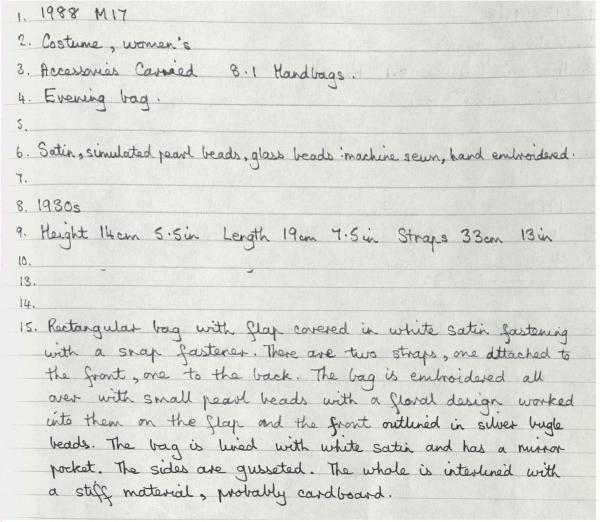 1. 1988 M17
2. Costume, women's
3. Accessories Carried 8.1 Handbags.
4. Evening bag.
5.
6. Satin, simulated pearl beads, glass beads : machine sewn, hand embroidered.
7.
8. 1930s
9. Height 14cm 5.5in Length 19cm 7.5in Straps 33cm 13in
10.
13.
14.
15. Rectangular bag with flap covered in white satin fastening
with a snap fastener. There are two straps, one attached to
the front, one to the back. The bag is embroidered all
over with small pearl beads with a floral design worked
into them on the flap and the front outlined in silver bugle
beads. The bag is lined with white satin and has a mirror
pocket. The sides are gusseted. The whole is interlined with
a stiff material, probably cardboard.